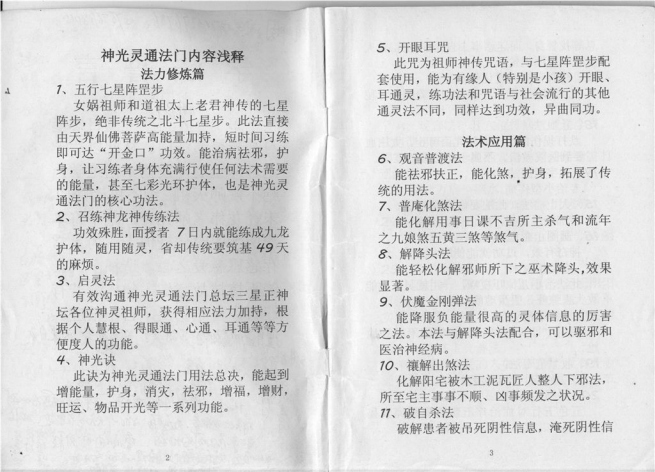 神光灵通法门内容浅释
法力修炼篇
1、五行七星阵罡步
女娲祖师和道祖太上老君神传的七星
阵步，绝非传统之北斗七星步。此法直接
由天界仙佛菩萨高能量加持，短时间习练
即可达“开金口”功效。能治病祛邪，护
身，让习练者身体充满行使任何法术需要
的能量，甚至七彩光环护体，也是神光灵
通法门的核心功法。
2、召练神龙神传练法
功效殊胜，面授者 7日内就能练成九龙
护体，随用随灵，省却传统要筑基 49 天
的麻烦。
3、启灵法
有效沟通神光灵通法门总坛三星正神
坛各位神灵祖师，获得相应法力加持，根
据个人慧根、得眼通、心通、耳通等等方
便度人的功能。
4、神光诀
此诀为神光灵通法门用法总决，能起到
增能量，护身，消灾，祛邪，增福，增财，
旺运、物品开光等一系列功能。
2
5、开眼耳咒
此咒为祖师神传咒语，与七星罡步配
套使用，能为有缘人（特别是小孩）开眼、
耳通灵，练功法和咒语与社会流行的其他
通灵法不同，同样达到功效，异曲同功。
法术应用篇
6、观音普渡法
能祛邪扶正，能化煞，护身，拓展了传
统的用法。
7、普庵化煞法
能化解用事日课不吉所主杀气和流年
之九娘煞五黄三煞等煞气。
8、解降头法
能轻松化解邪师所下之巫术降头,效果
显著。
9、伏魔金刚弹法
能降服负能量很高的灵体信息的厉害
之法。本法与解降头法配合，可以驱邪和
医治神经病。
10、禳解出煞法
化解阳宅被木工泥瓦匠人整人下邪法，
所至宅主事事不顺、凶事频发之状况。
11、破自杀法
破解患者被吊死阴性信息，淹死阴性信
3